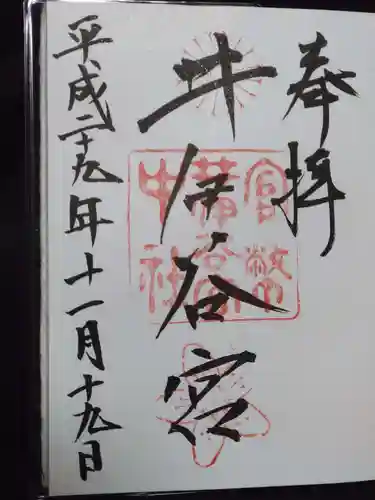 奉拝
井伊谷宮
平成二十九年十一月十九日
官幣
中社